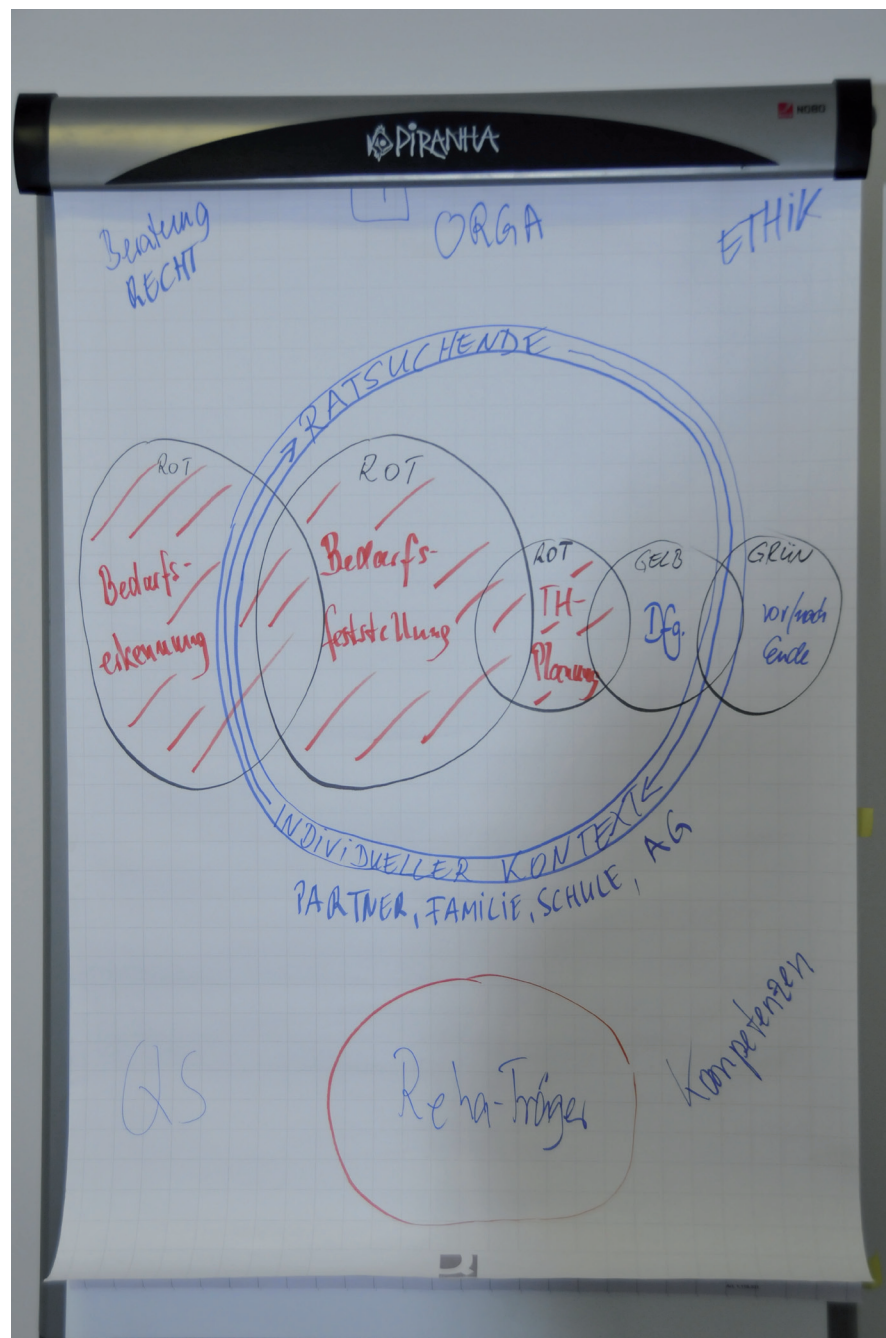 NOBO
PIRANHA
Beratung
RECHT
ORGA
ETHIK
RATSUCHENDE
ROT
Bedarfs-
erkennung
ROT
Bedarfs-
feststellung
ROT
TH-
Planung
GELB
Dfg.
GRÜN
vor/nach
Ende
INDIVIDUELLER KONTEXT
PARTNER, FAMILIE, SCHULE, AG
QS
Reha-Träger
Kompetenzen